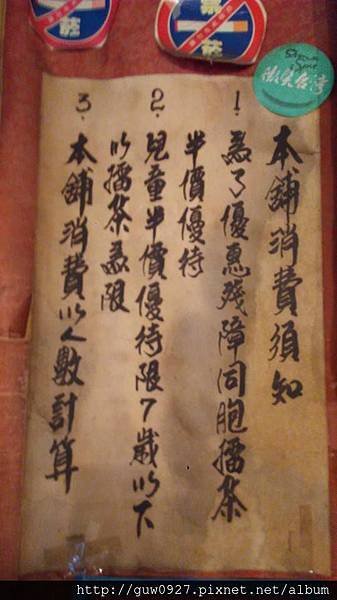 禁菸
微笑台灣
本舖消費須知
1.
為了優惠殘障同胞擂茶
半價優待
2.
兒童半價優待限7歲以下
以擂茶為限
3.
本舖消費以人數計算
http://guw0927.pixnet.net/album